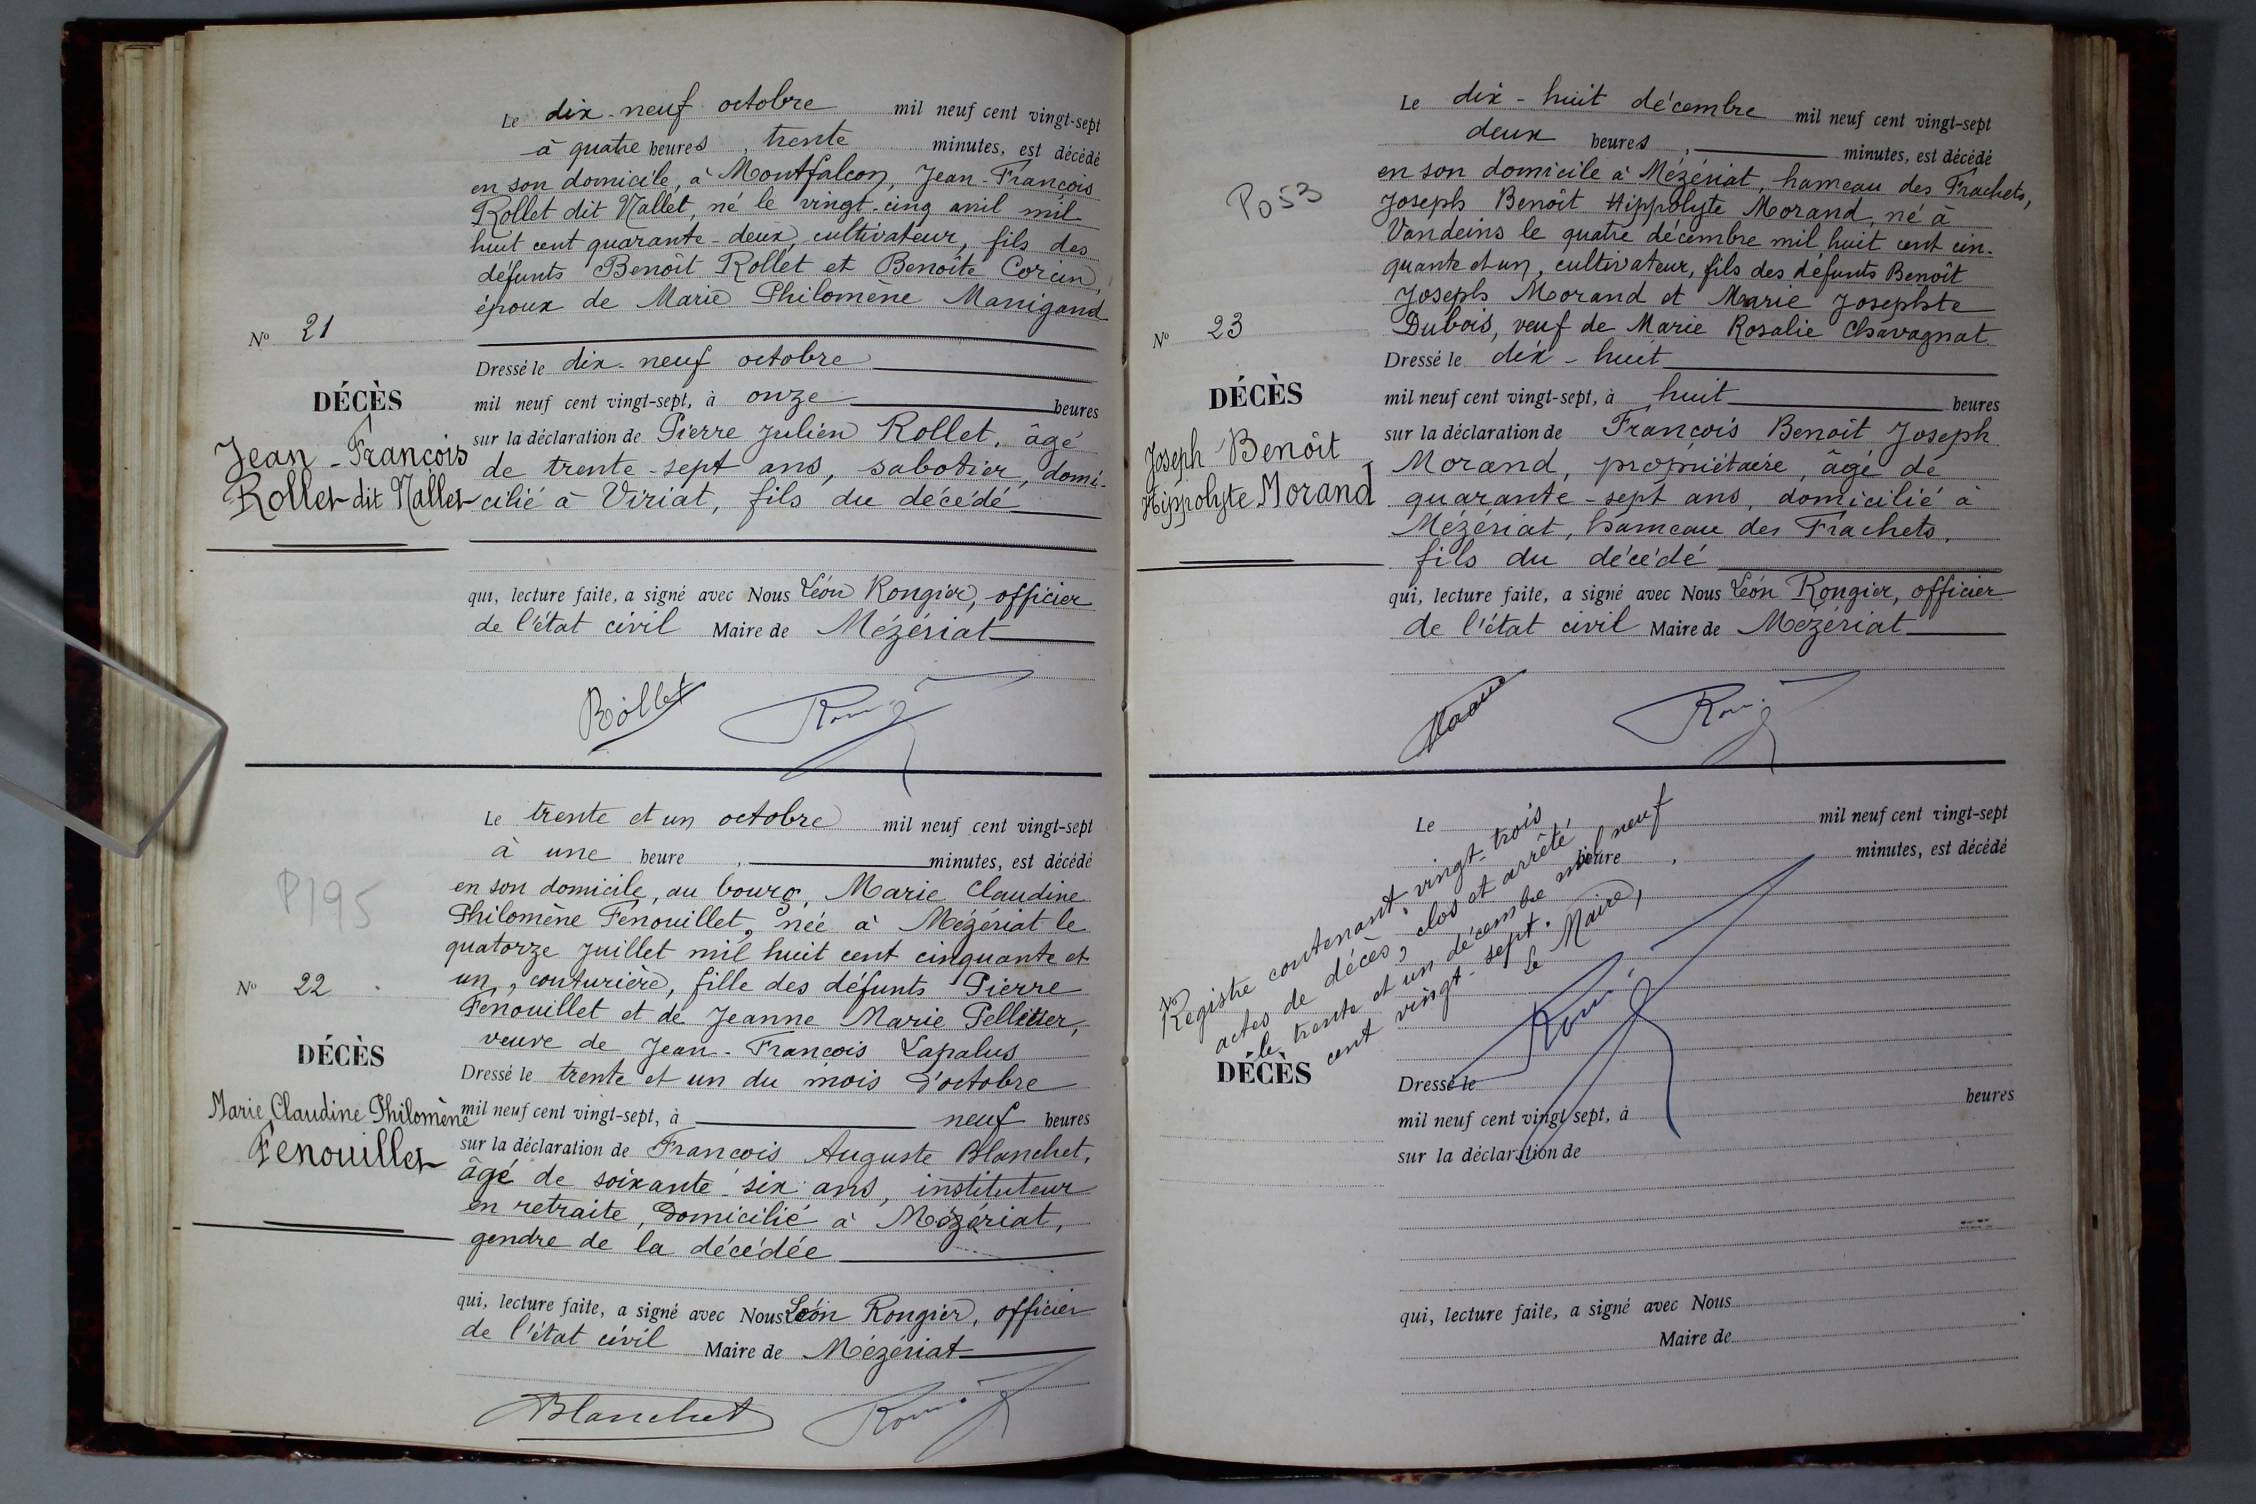 Le dix-neuf octobre mil neuf cent vingt-sept
à quatre heures, trente minutes, est décédé
en son domicile, à Montfalcon, Jean-François
Rollet dit Nallet, né le vingt-cinq avril mil
huit cent quarante-deux, cultivateur, fils des
défunts Benoît Rollet et Benoîte Corcin,
époux de Marie Philomène Manigand
N° 21
Dressé le dix-neuf octobre
DÉCÈS
mil neuf cent vingt-sept, à onze heures
Jean-François
Rollet dit Nallet
sur la déclaration de Pierre Julien Rollet, âgé
de trente-sept ans, sabotier, domi-
cilié à Viriat, fils du décédé
qui, lecture faite, a signé avec Nous Léon Rongier, officier
de l'état civil Maire de Mézériat
Rollet
P195
Le trente et un octobre mil neuf cent vingt-sept
à une heure, minutes, est décédé
en son domicile, au bourg, Marie Claudine
Philomène Fenouillet, née à Mézériat le
quatorze juillet mil huit cent cinquante et
un, couturière, fille des défunts Pierre
Fenouillet et de Jeanne Marie Pelletier,
veuve de Jean-François Lapalus
N° 22
DÉCÈS
Marie Claudine Philomène
Fenouillet
Dressé le trente et un du mois d'octobre
mil neuf cent vingt-sept, à neuf heures
sur la déclaration de François Auguste Blanchet,
âgé de soixante-six ans, instituteur
en retraite, domicilié à Mézériat,
gendre de la décédée
qui, lecture faite, a signé avec Nous Léon Rongier, officier
de l'état civil Maire de Mézériat
Blanchet
P053
Le dix-huit décembre mil neuf cent vingt-sept
deux heures, minutes, est décédé
en son domicile à Mézériat, hameau des Frachets,
Joseph Benoît Hippolyte Morand, né à
Vandeins le quatre décembre mil huit cent cin-
quante et un, cultivateur, fils des défunts Benoît
Joseph Morand et Marie Josephte
Dubois, veuf de Marie Rosalie Chavagnat
N° 23
DÉCÈS
Joseph Benoît
Hippolyte Morand
Dressé le dix-huit
mil neuf cent vingt-sept, à huit heures
sur la déclaration de François Benoît Joseph
Morand, propriétaire, âgé de
quarante-sept ans, domicilié à
Mézériat, hameau des Frachets,
fils du décédé
qui, lecture faite, a signé avec Nous Léon Rongier, officier
de l'état civil Maire de Mézériat
Le mil neuf cent vingt-sept
heure, minutes, est décédé
Registre contenant vingt-trois
actes de décès, clos et arrêté
le trente et un décembre mil neuf
cent vingt-sept.
Le Maire,
N°
DÉCÈS
Dressé le
mil neuf cent vingt-sept, à heures
sur la déclaration de
qui, lecture faite, a signé avec Nous
Maire de